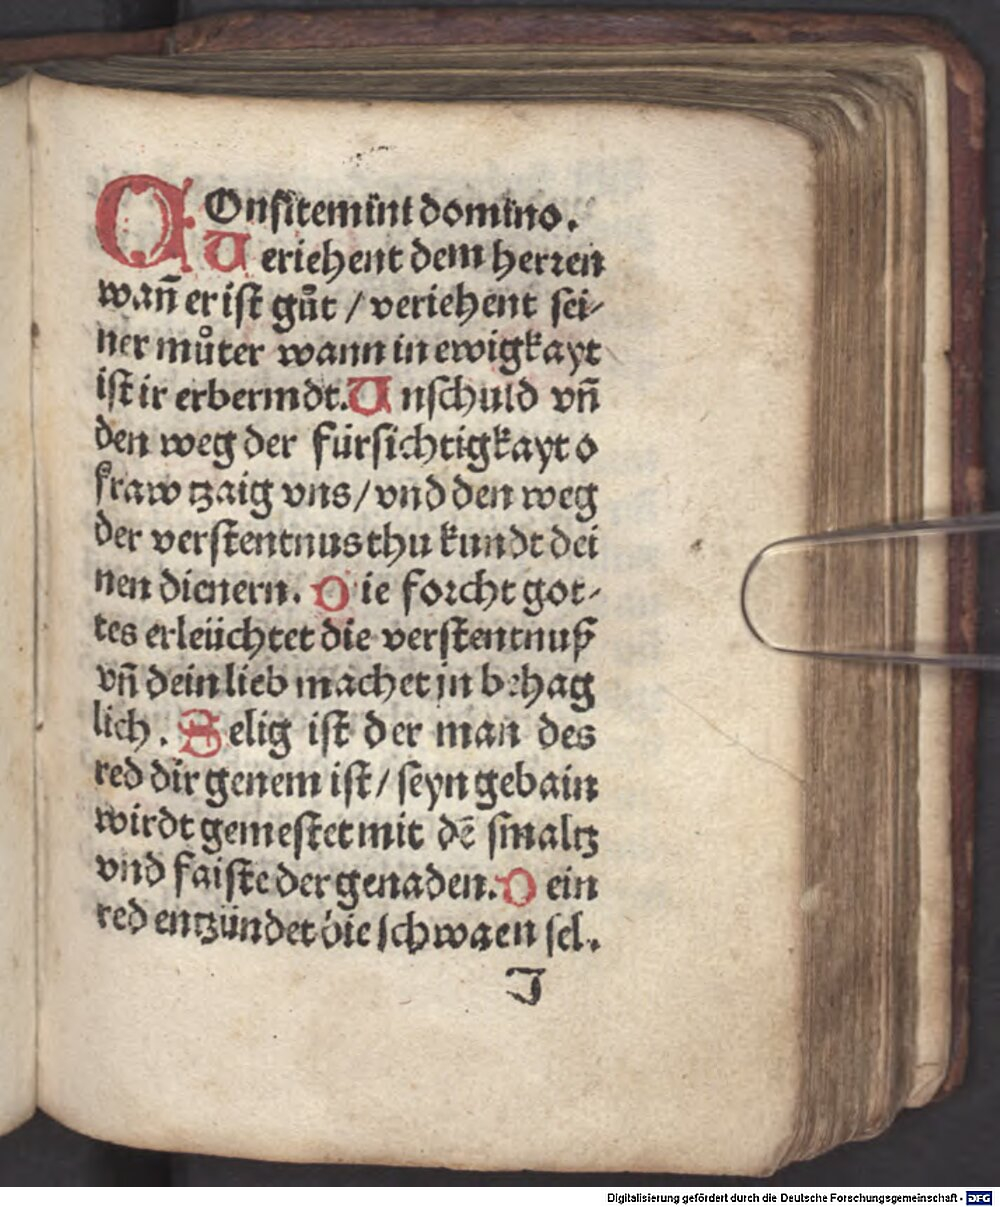 COnfitemini domino.
Veriehent dem herren
wañ er ist gůt / veriehent sei-
ner můter wann in ewigkayt
ist ir erbermdt. Unschuld vñ
den weg der fürsichtigkayt o
fraw tzaig vns / vnd den weg
der verstentnus thu kundt dei
nen dienern. Die forcht got-
tes erleüchtet die verstentnuß
vñ dein lieb machet jn behag
lich. Selig ist der man des
red dir genem ist / seyn gebain
wirdt gemestet mit dē smaltz
vnd faiste der genaden. Dein
red entzündet die schwaen sel.
I
Digitalisierung gefördert durch die Deutsche Forschungsgemeinschaft - DFG